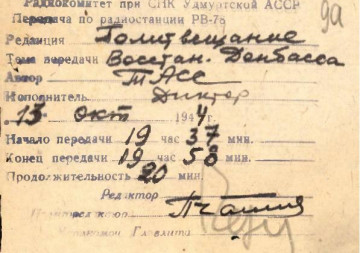 Радиокомитет при СНК Удмуртской АССР
Передача по радиостанции РВ-78
9а
Редакция Политвещание
Тема передачи Восстан. Донбасса
Автор ТАСС
Исполнитель Диктор
13 окт 1944
Начало передачи 19 час 37 мин.
Конец передачи 19 час 58 мин.
Продолжительность 20 мин.
Редактор
Главлита